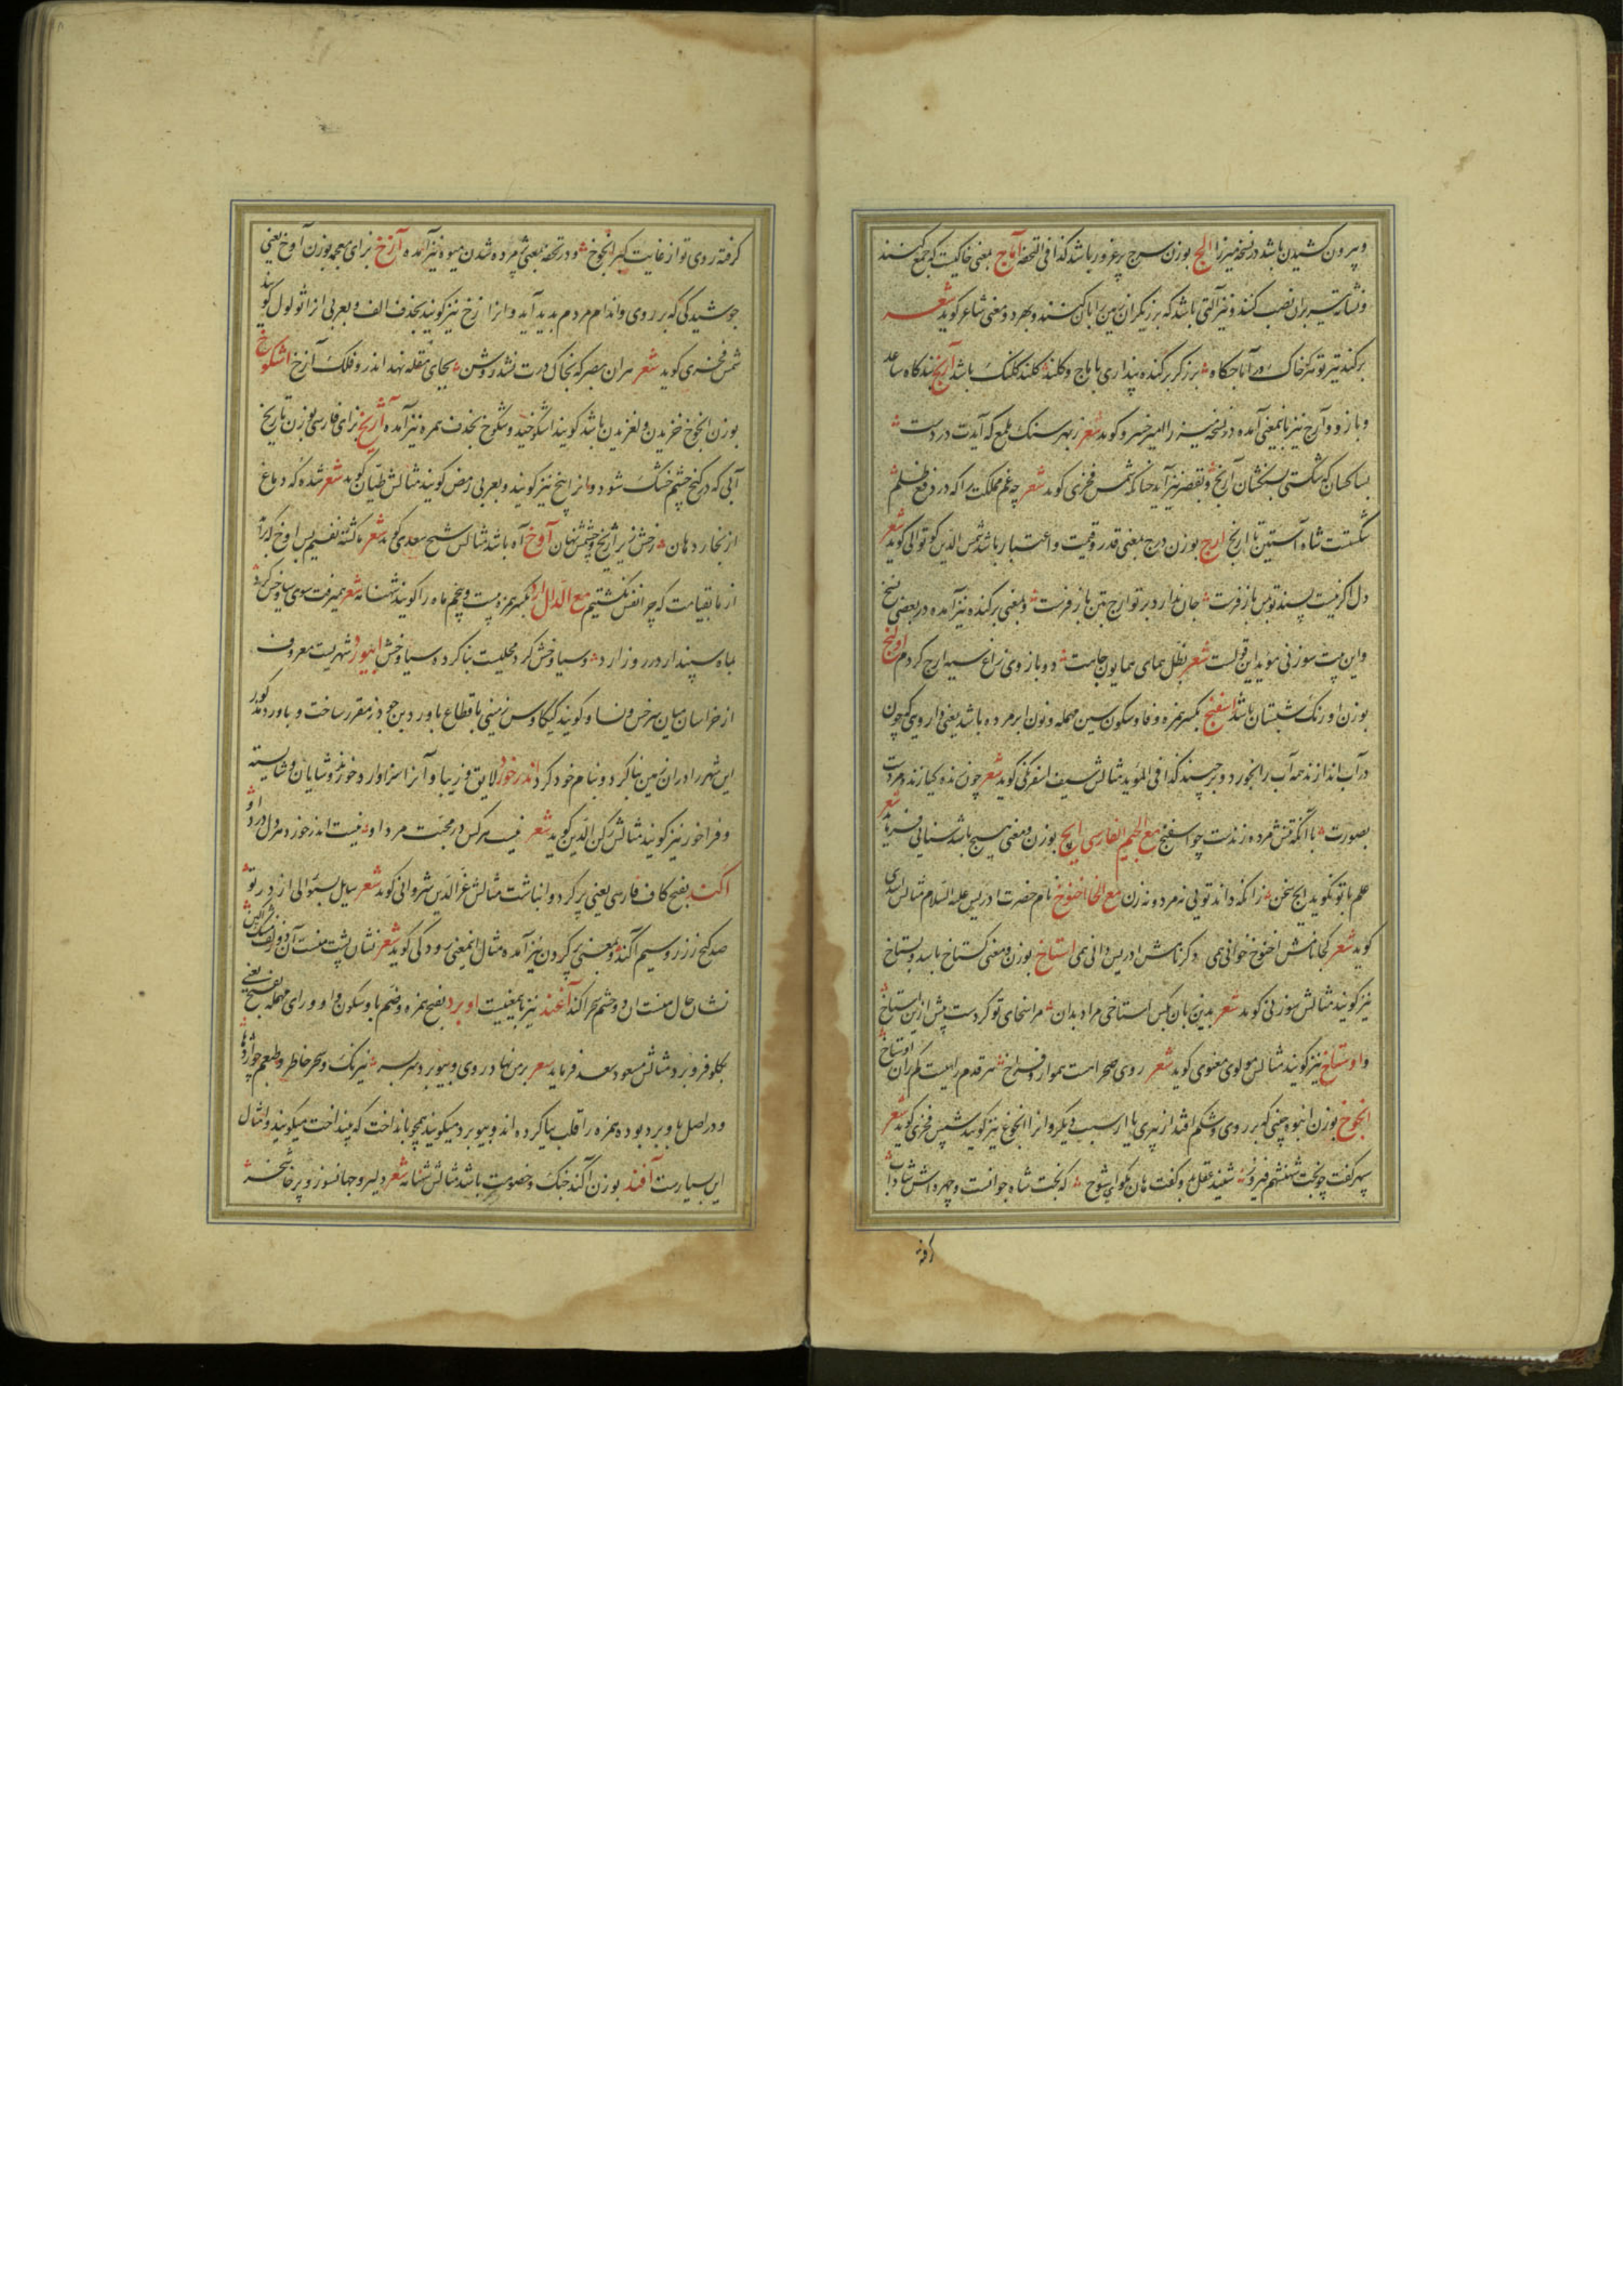 و بیرون کشیدن باشد در نسخه میرزا الج بوزن سرج پرغرور باشد کذا فی التحفه آماج بمعنی خاکیست که جمع کنند
و نشانه بران نصب کنند و نیز آلتی باشد که برزیکران زمین را بآن کنند و بهر دو معنی شاعر کوید شعر
برکند تیر تو تیز خاک در آماجکاه برزکر برکنده پنداری باماج و کلند کلند کلنک باشد آرنج بندکاه ساعد
و بازو و آرج نیز بامعنی آمده در نسخه میرزا امیر خسرو کوید شعر زبهر سنک که آیدت در دست
بسا کسان که شکستی آرنج و بقصر نیز آید چنانکه شمس فخری کوید شعر چه غم مملکت را که در دفع ظلم
شکست شاه آستین تا آرنج ارج بوزن درج بمعنی قدر و قیمت و اعتبار باشد شمس الدین کوتوالی کوید شعر
دل اکر نیست پسند تو پس باز فرست جان ندارد بر تو ارج بمن باز فرست و بمعنی برکنده نیز آمده در بعضی نسخ
و این بیت سوزنی مؤید این قولست شعر بظل همای همایون جاهت دو بازوی زاغ سیه ارج کردم اورنج
بوزن اورنک شبستان باشد اسفنج بکسر همزه و فا و سکون سین مهمله و نون ابر مرده باشد یعنی دارویی که چون
در آب اندازند همه آب را بخورد و برچسند کذا فی المؤید مثالش سیف اسفرنکی کوید شعر چون نده کیا زنده مردت
بصورت با آنکه تنش مرده زندست چو اسفنج مع الجیم الفارسی ایچ بوزن و معنی هیچ باشد سنایی فرماید شعر
علم با تو نکوید ایچ سخن زانکه داند تویی نه مرد و نه زن مع الخا اخنوخ نام حضرت ادریس علیه السلام مثالش اسدی
کوید شعر کجا نامش اخنوخ خوانی همی دکر نامش ادریس دانی همی استاخ بوزن و معنی کستاخ باشد و بستاخ
نیز کویند مثالش سوزنی کوید شعر بدین زبان استاخی مرا بدان مر استخای تو کردست پیش ازین استاخ
و اوستاخ نیز کویند مثالش مولوی معنوی کوید شعر روی صحرا هست هموار و فراخ هر قدم رامیست کم ران اوستاخ
انجوخ بوزن انبوه چینی که بر روی و شکم افتد از پیری یا از سبب دیکر و انرا انجوغ نیز کویند شمس فخری کوید شعر
سپهر کفت چو بخت شهنشهم فیروز شنید عقل و کفت هان مکوای شوخ که بخت شاه جوانست و چهره اش شاداب
کرفته
کرفته روی تو از غایت کبر انجوخ و در تحفه بمعنی پژمرده شدن میوه نیز آمده آزخ بزای معجمه بوزن آوخ یعنی
جوشیدکی که بر روی و اندام مردم پدید آید و انرا زخ نیز کویند بحذف الف و بعربی انرا ثولول کویند
شمس فخری کوید شعر هران بصر که بخاک درت نشد روشن بجای مقله نهد اندرو فلک آزخ اشکوخ
بوزن انجوخ خزیدن و لغزیدن باشد کویند اشکوخید و شکوخ بحذف همزه نیز آمده آژیخ بزای فارسی بوزن تاریخ
آبی که در کنج چشم خشک شود و انرا پیخ نیز کویند و بعربی رمص کویند مثالش طیان کوید شعر شده که دباغ
از بخار دهان رخش زیر آژیخ و چشمش نهان آوخ آه باشد مثالش شیخ سعدی کوید شعر ما کشته نفسیم پس اوخ که برآید
از ما بقیامت که چرا نفس نکشتیم مع الدال ارد بکسر همزه بیست و پنجم ماه را کویند شهنامه شعر همیرفت سوی سیاوخش کرد
بماه سپندار در روز ارد و سیاوخش کرد محلیست بنا کرده سیاوخش ابیورد شهریست معروف
از خراسان میان سرخس و نسا و کویند کیکاوس زمینی باقطاع باورد بن جودرز مقرر ساخت و باورد مذکور
این شهر را در ان زمین بنا کرد و بنام خود کرد اندرخورد لایق و زیبا و آنرا سزاوار و درخور نیز و شایان و شایسته
و فراخور نیز کویند مثالش رکن الدین کوید شعر نیست هر کس در محبت مرد او نیست اندرخورد هر دل درد او
اکند بفتح کاف فارسی یعنی پر کرد و انباشت مثالش عزالدین شروانی کوید شعر سایل بستوالی از در تو
صد کنج ز زر و سیم آکند و بمعنی پر کردن نیز آمده مثال اینمعنی رودکی کوید شعر نشان پشت منست آن دو زلف مشک آکین
نشان جان منست ان دو چشم سحر اکند آغند نیز بامعنیست اوبرد بفتح همزه و ضم با و سکون واو و رای مهمله بفتح یعنی
بکلو فرو برد مثالش مسعود سعد فرماید شعر بمن نهاد روی و بیوبرد سربسر نیرنک و سحر خاطر و طبعم چو اژدها
و در اصل باوبرد بوده همزه را قلب بیا کرده اند و بیوبرد میکویند همچو بانداخت که بینداخت میکویند و امثال
این بسیارست آفند بوزن آکند جنک و خصومت باشد مثالش شهنامه شعر دلیر و جهانسوز و پرخاشخر